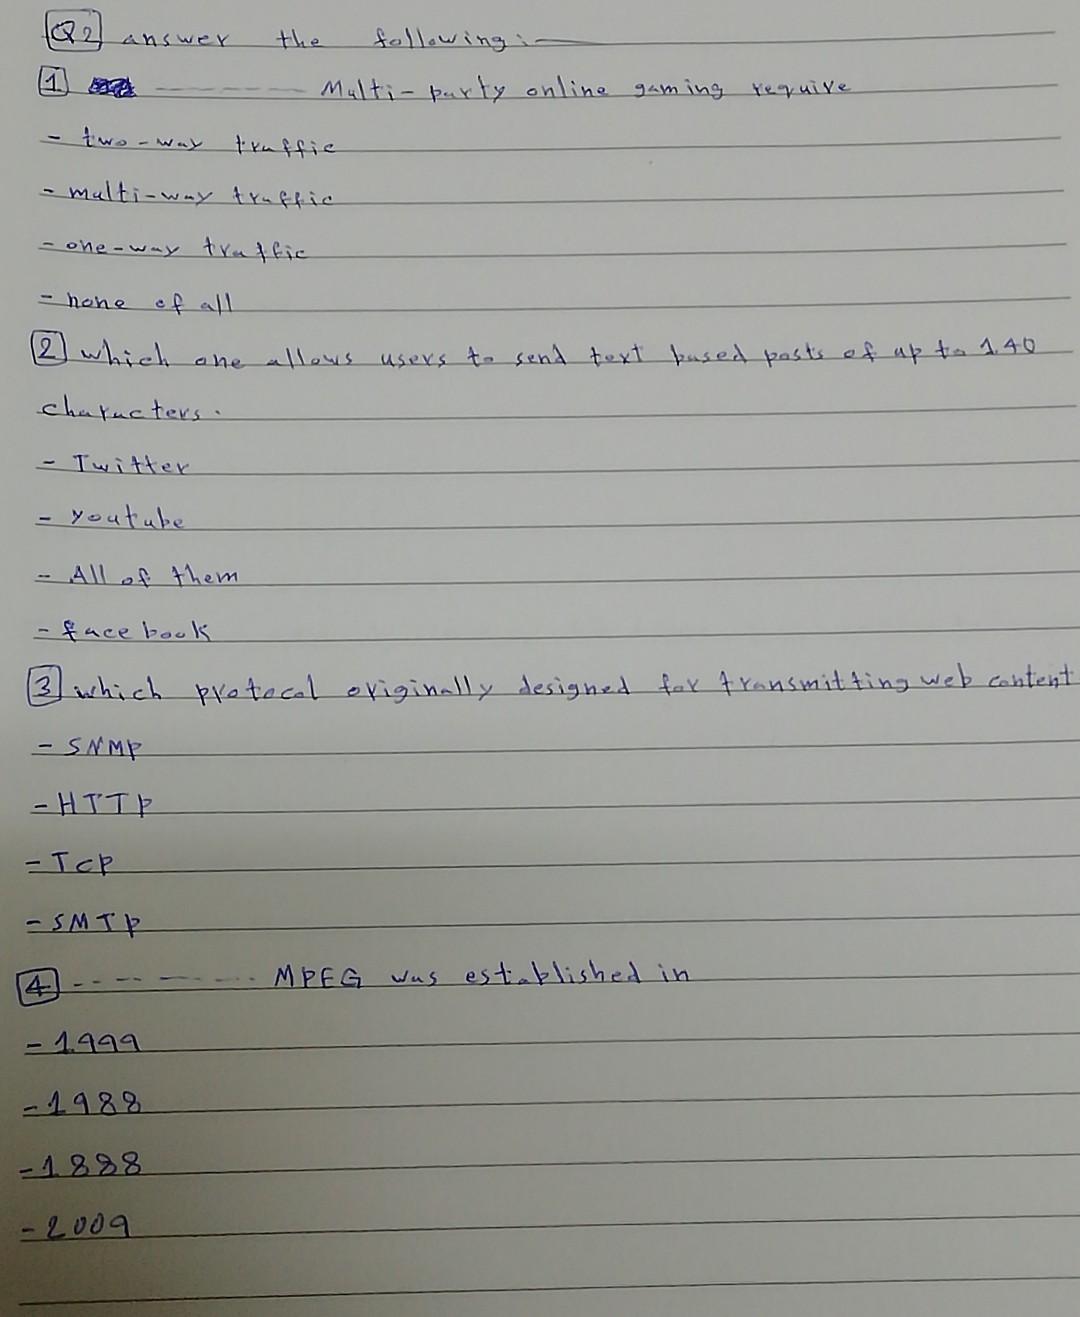 Q2 answer the following:-
1 -------- Multi-party online gaming require
- two-way traffic
- multi-way traffic
- one-way traffic
- none of all
2 which one allows users to send text based posts of up to 140
characters.
- Twitter
- youtube
- All of them
- facebook
3 which protocol originally designed for transmitting web content
- SNMP
- HTTP
- TCP
- SMTP
4 --------- MPEG was established in
- 1999
- 1988
- 1888
- 2009